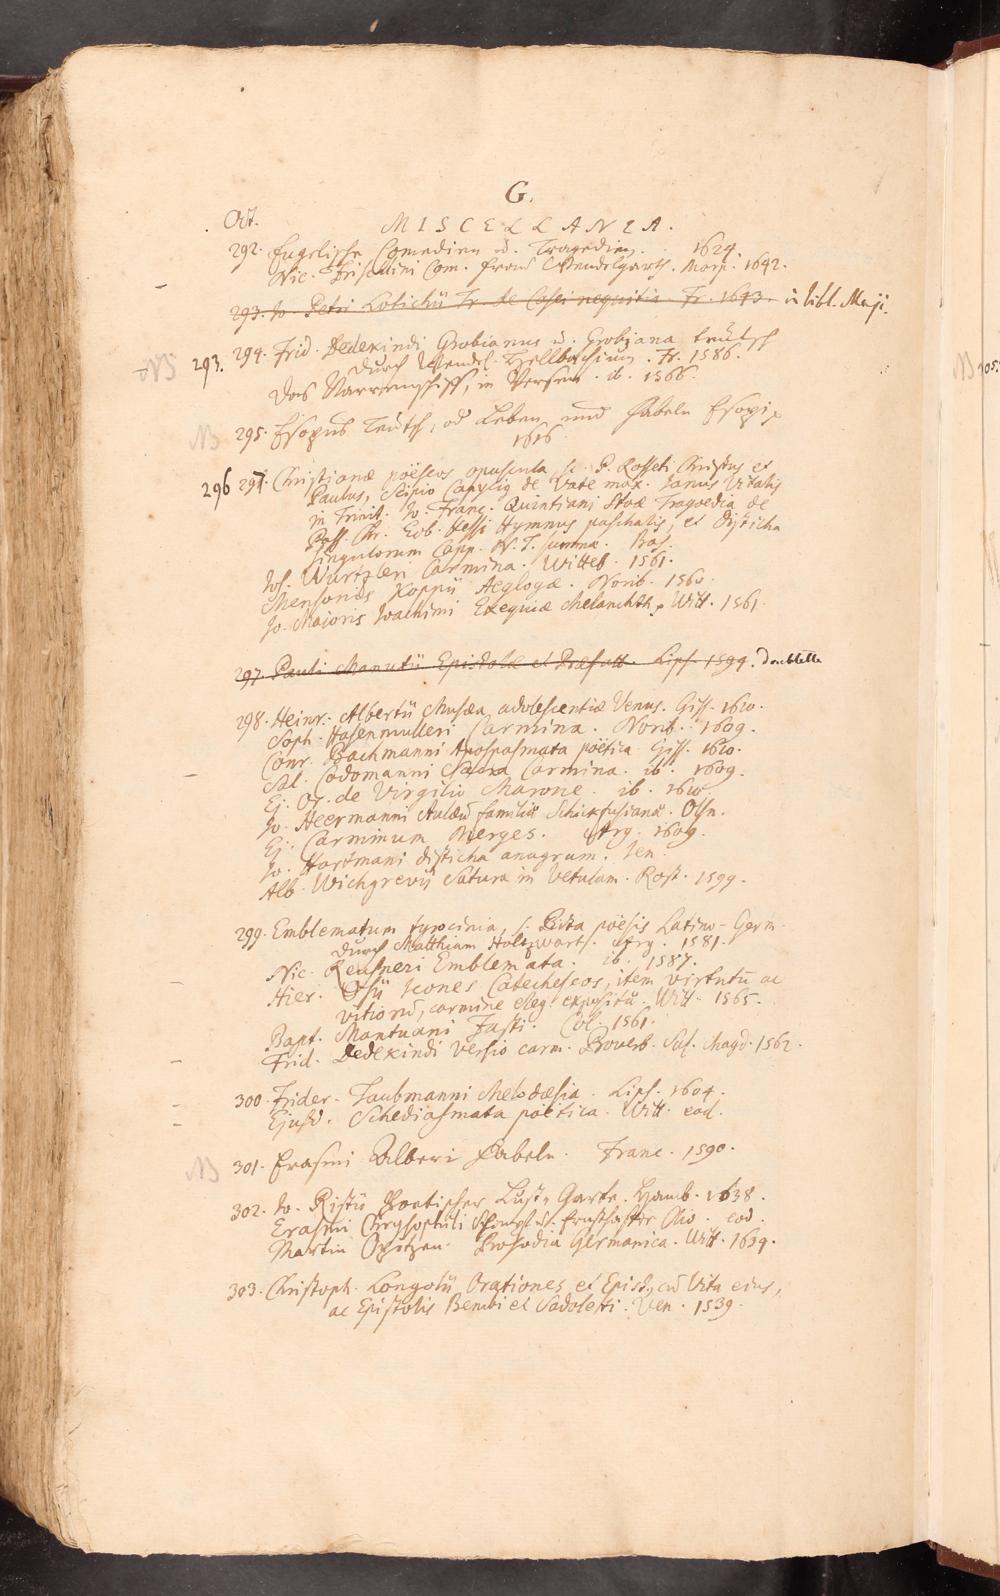 G.
Oct. MISCELLANEA.
292. Engelische Comedien u. Tragedien. 1624.
Nic. Frischlini Com. Fraw Wendelgarth. 1642.
293. Jo. Petri Lotichii Tr. de Casei nequitia. Fr. 1643. in bibl. Maji.
NB 293. 294. Frid. Dedekindi Grobianus u. Grobiana teutsch
durch Wendel. Hellbachium. Fr. 1586.
Das Narrenschiff, in Versen. ib. 1566.
NB 295. Esopus Teutsch, od Leben und Fabeln Esopi
1616.
296 297. Christianæ poëseos opuscula, sc. P. Rosseti Christus et
Paulus, Scipio Capycig de Vate max. Janus Vitalis
in Trinit. Jo. Franc. Quintiani Stoæ Tragoedia de
Pass. Chr. Eob. Hessi Hymnus paschalis, et disticha
singulorum Capp. N. T. summa. Bas.
Joh. Wurtzleri Carmina. Witteb. 1561.
Mensonis Koppii Aeglogæ. Norib. 1560.
Jo. Majoris Joachimi Exequiæ Melanchth. Witt. 1561.
297. Pauli Manutii Epistolæ et Præfatt. Lips. 1599. doublette
298. Heinr. Albertii Musæa adolescentiæ Venus. Giss. 1610.
Soph. Hasenmulleri Carmina. Norib. 1609.
Conr. Bachmanni Apospasmata poëtica Giss. 1610.
Sal. Codomanni Sacra Carmina. ib. 1609.
Ej. Or. de Virgilio Marone. ib. 1610.
Jo. Heermanni Aulæu familiæ Schickfusianæ. Olsn.
Ej. Carminum Merges. Arg. 1609.
Jo. Hartmani disticha anagram. Jen.
Alb. Wichgrevii Satura in Vetulam. Rost. 1599.
299. Emblematum tyrocinia, s. Picta poësis Latino-Germ.
durch Matthiam Holtzwart. Arg. 1581.
Nic. Reusneri Emblemata. ib. 1587.
Hier. Osii Icones Catecheseos, item virtutũ ac
vitiorũ, carmine eleg. expositũ. Witt. 1565.
Bapt. Mantuani Fasti. Col. 1561.
Frid. Dedekindi versio carm. Proverb. Sal. Magd. 1562.
300. Frider. Taubmanni Melodæsia. Lips. 1604.
Ejusd. Schediasmata poëtica. Witt. eod.
NB 301. Erasmi Alberi Fabeln. Franc. 1590.
302. Jo. Ristii Poetischer Lust-Garte. Hamb. 1638.
Erasmi Chrysophili Schimpf u. Ernsthafter Olio. eod.
Martin Opitzen. Prosodia Germanica. Witt. 1639.
303. Christoph. Longolii Orationes et Epist., cũ Vita ejus,
ac Epistolis Bembi et Sadoleti. Ven. 1539.
NB 305.